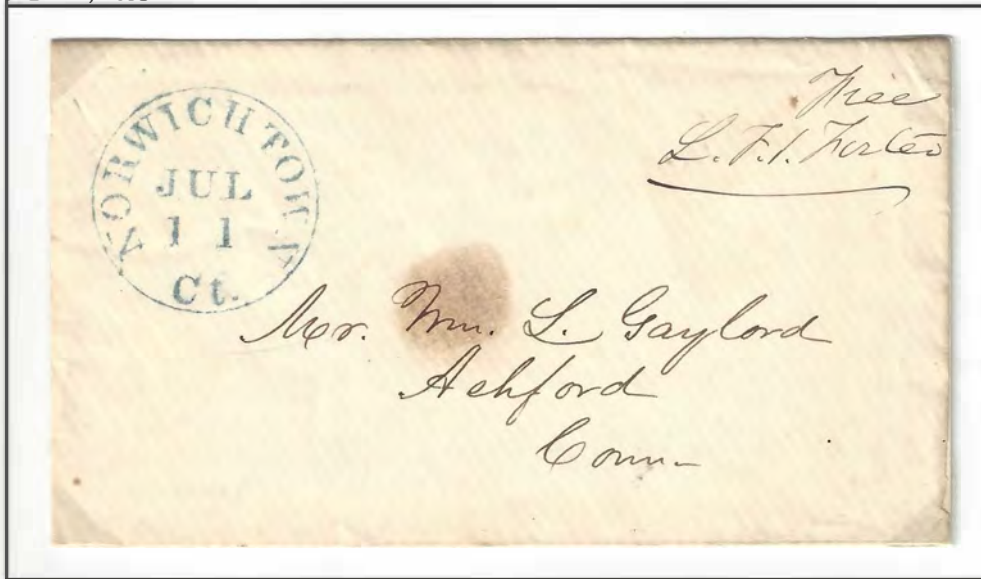 NORWICH TOWN
JUL
11
Ct.
Free
L. F. S. Foster
Mr. Wm. L. Gaylord
Ashford
Conn-